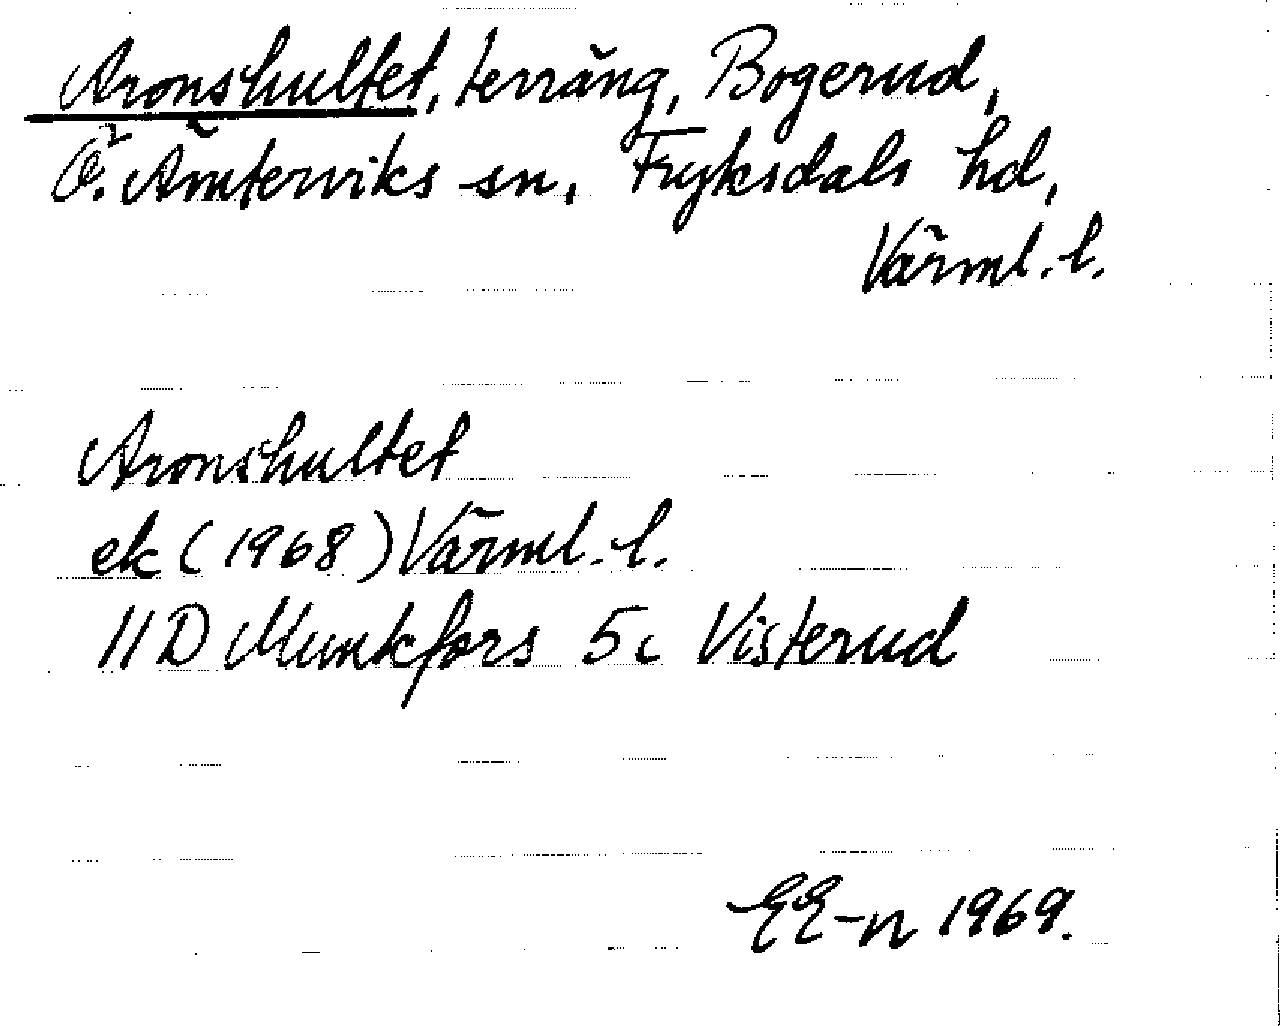 Aronshultet, terräng, Bogerud,
Ö. Ämterviks sn, Fryksdals hd,
Värml. l.
Aronshultet
ek (1968) Värml. l.
11D Munkfors 5c Visterud
EE-n 1969.